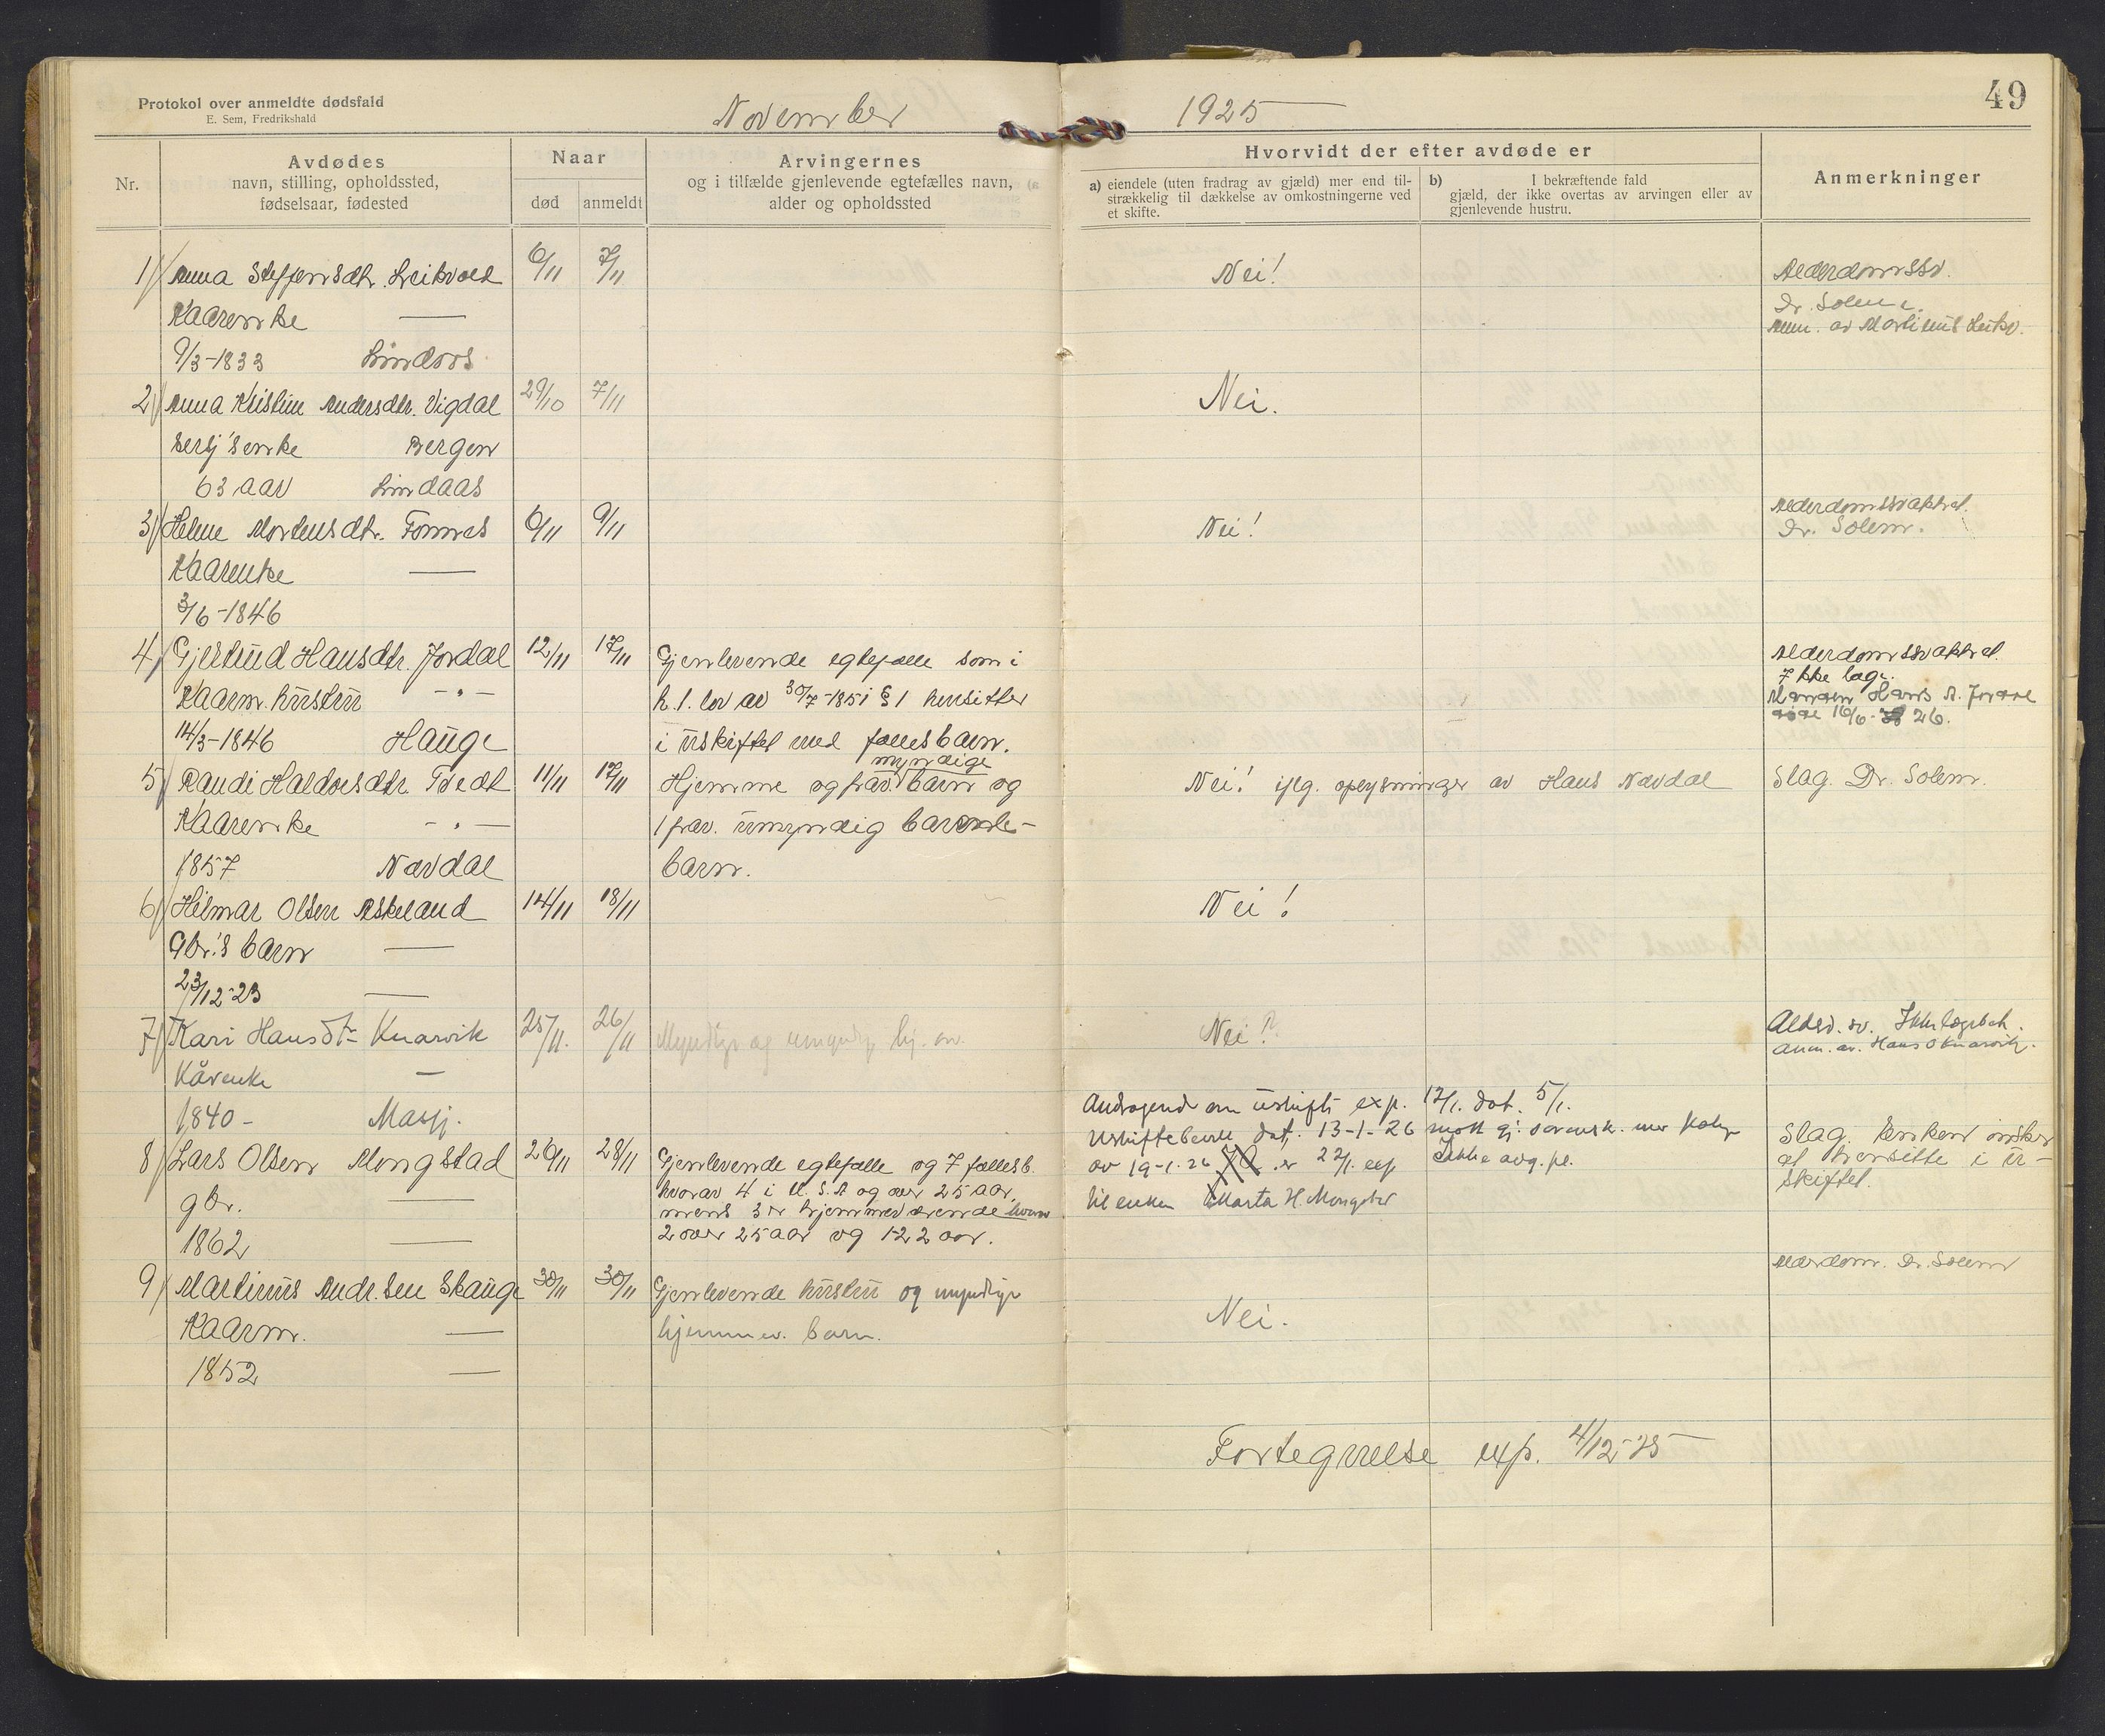 Protokol over anmeldte dødsfald
E. Sem, Fredrikshald
November 1925
49
Nr.
Avdødes
navn, stilling, opholdssted,
fødselsaar, fødested
Naar
død
anmeldt
Arvingernes
og i tilfælde gjenlevende egtefælles navn,
alder og opholdssted
Hvorvidt der efter avdøde er
a) eiendele (uten fradrag av gjæld) mer end til-
strækkelig til dækkelse av omkostningerne ved
et skifte.
b) I bekræftende fald
gjæld, der ikke overtas av arvingen eller av
gjenlevende hustru.
Anmerkninger
1/ Anna Steffensdtr. Leikvold 6/11 7/11 Nei! Alderdomssv.
Kaarenke — Dr. Solem.
Anm. av Martinus Leikv.
9/3-1833 Lindaas
2/ Anna Kristine Andersdtr. Vigdal 29/10 7/11 Nei.
Bergen
63 aar Lindaas
3/ Helene Mortensdtr. Fonnes 6/11 9/11 Nei! Alderdomssvakhet.
Dr. Solem.
Kaarenke —
3/6-1846
4/ Gjertrud Hansdtr. Jordal 12/11 17/11 Gjenlevende egtefælle som i Alderdomssvakhet.
Ikke læge.
Kaarm. hustru -"- h. t. lov av 30/7-1851 § 1 hensitter Manden Hans A. Jordal
døde 16/6- 26.
14/3-1846 Hauge i uskiftet med fællesbarn.
5/ Randi Haldorsdtr. Tvedt 11/11 17/11 Hjemme og frav. myndige barn og Nei! iflg. oplysninger av Hans Nævdal Slag. Dr. Solem.
Kaarenke -"- 1 frav. umyndig barne-
1857 Nævdal barn.
6/ Hilmar Olsen Askeland 14/11 18/11 Nei!
Gbr.'s barn —
23/12-23 —
7/ Kari Hansdtr Knarvik 25/11. 26/11 Myndige og umyndige hj. Nei? Aldsd. sv. Ikke lægebeh.
Anm. av. Hans O Knarvik.
Kårenke —
1840 - Masfj.
Andragende om uskifte exp. 12/1. dat. 5/1.
Uskiftebevill. dat. 13-1-26
8/ Lars Olsen Mongstad 26/11 28/11 Gjenlevende egtefælle og 7 fællesb. av 19-1-26 22/1. exp Ikke avg. pl. Slag. Enken ønsker
at hensitte i u-
skiftet.
gbr. — hvorav 4 i U. S. A og over 25 aar, til enken Marta H. Mongstad
mens 3 er hjemmeværende hvorav
1862 — 2 over 25 aar og 1-22 aar.
9/ Martinus Andr.sen Skauge 30/11 30/11 Gjenlevende hustru og myndige Nei. Alderdom. Dr. Solem
Kaarm. — hjemmev. barn.
1852 —
Fortegnelse exp. 4/12-25